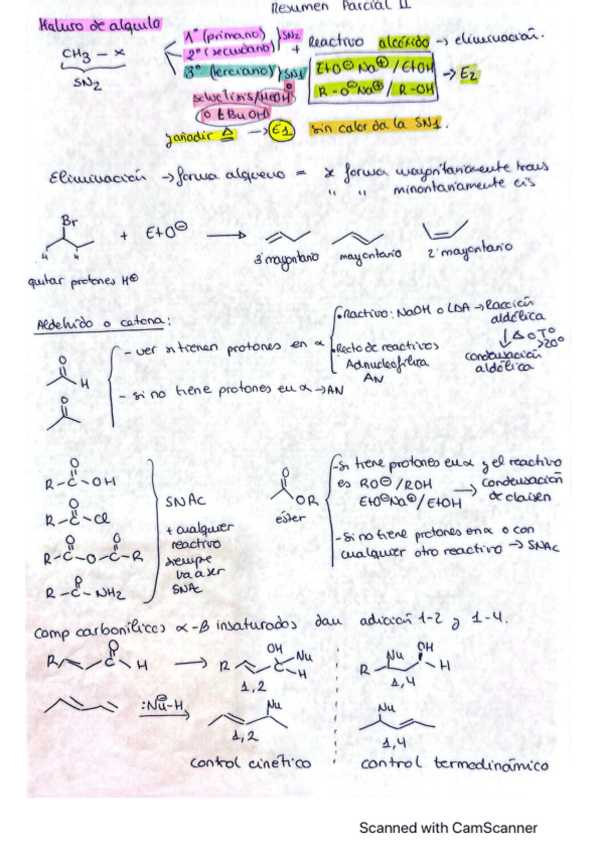 Resumen Parcial II
Haluro de alquilo
CH3 – x
SN2
1º (primario)
2º (secundario)
SN2
3º (terciario)
SN1
+ Reactivo alcóxido → eliminación.
EtO⊖ Na⊕ / EtOH
R - O⊖ Na⊕ / R - OH
→ E2
solvólisis/MeOH
o tBuOH
y añadir Δ → E1
sin calor da la SN1.
Eliminación → forma alqueno = * forma mayoritariamente trans
" " minoritariamente cis
Br
H
H
+ EtO⊖
3º mayoritario
mayoritario
2º mayoritario
quitar protones H⊕
Aldehído o cetona:
O
H
O
- ver si tienen protones en α
- si no tiene protones en α → AN
• Reactivo: NaOH o LDA → Reacción aldólica
↓ Δ o Tº >20º
condensación aldólica
• Resto de reactivos
Ad nucleofílica
AN
O
R-C-OH
O
R-C-Cl
O O
R-C-O-C-R
O
R-C-NH2
SNAc
+ cualquier
reactivo
siempre
va a ser
SNAc
O
OR
éster
- si tiene protones en α y el reactivo
es RO⊖ / ROH
EtO⊖Na⊕ / EtOH
→ condensación
de claisen
- si no tiene protones en α o con
cualquier otro reactivo → SNAc
Comp carbonílicos α-β insaturados dan adición 1-2 y 1-4.
O
R C H
→
OH
R C Nu
H
1,2
Nu OH
R H
1,4
:Nu-H
Nu
1,2
Nu
1,4
control cinético
control termodinámico
Scanned with CamScanner